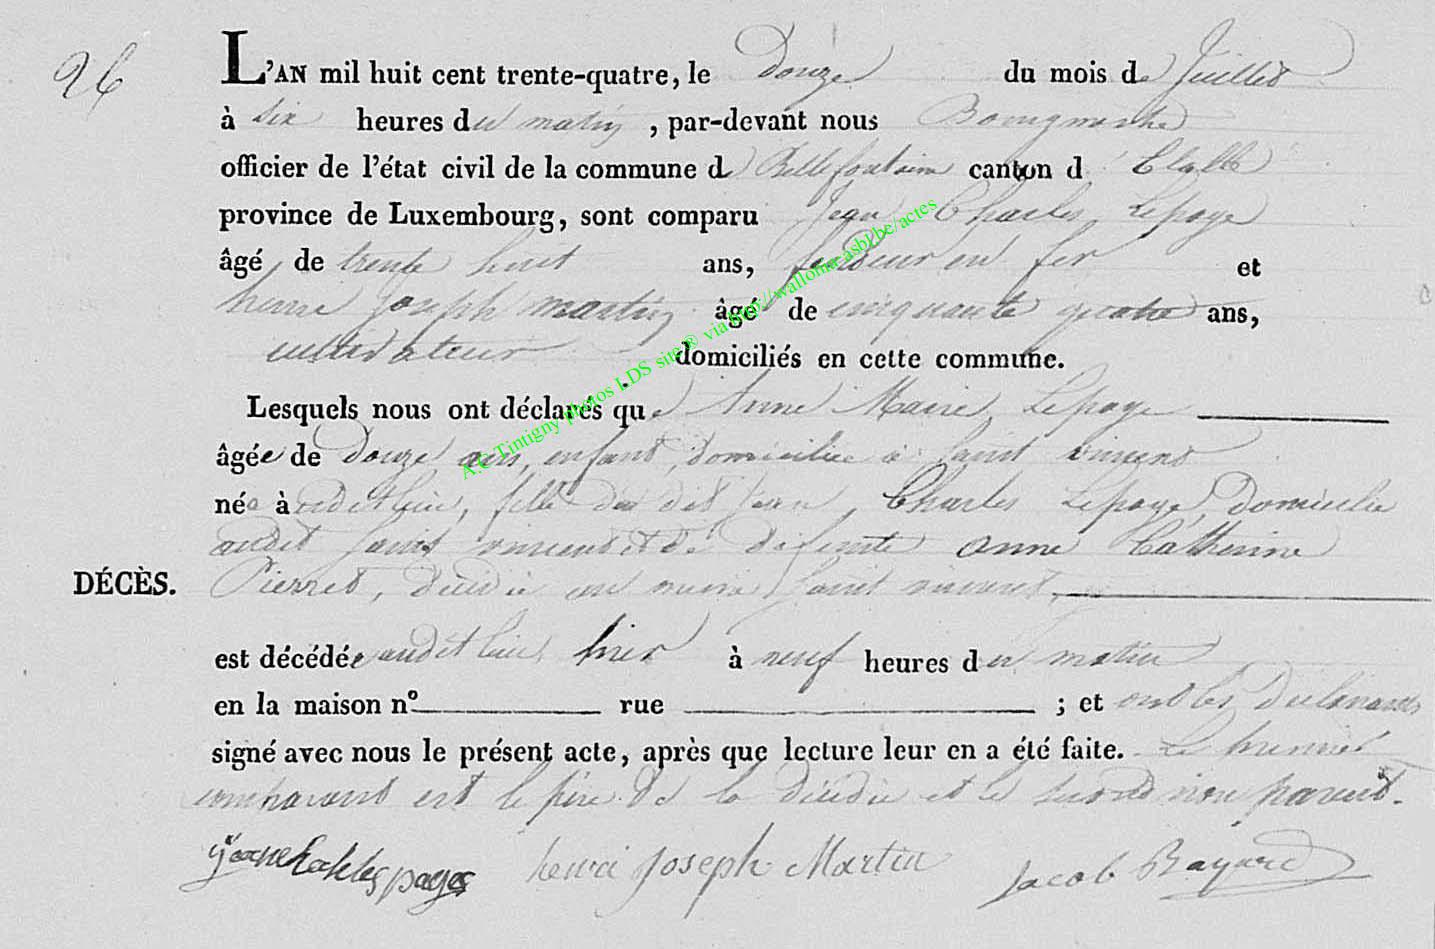 26
L'AN mil huit cent trente-quatre, le Douze du mois de Juillet
à six heures du matin, par-devant nous Bourgmestre
officier de l'état civil de la commune de Bellefontaine canton d' Etalle
province de Luxembourg, sont comparu Jean Charles Lepage
âgé de trente huit ans, fendeur en fer et
henri Joseph martin âgé de cinquante quatre ans,
cultivateur domiciliés en cette commune.
Lesquels nous ont déclarés que Anne Marie Lepage
âgée de douze ans, enfant, domiciliée à saint vincent
née à audit lieu, fille du dit Jean Charles Lepage, domicilié
audit saint vincent et de défunte anne Catherine
Pierret, décédée au même saint vincent,
DÉCÈS.
est décédée audit lieu hier à neuf heures du matin
en la maison nº rue ; et ont les déclarants
signé avec nous le présent acte, après que lecture leur en a été faite. Le premier
comparant est le père de la décédée et le second non parent.
henri Joseph Martin Jacob Bayard
A.C Tintigny photos LDS site® via http://wallonia-asbl.be/actes